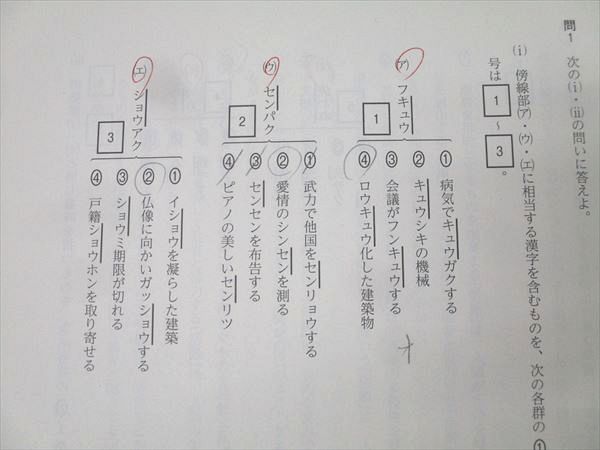 問1 次の(ⅰ)・(ⅱ)の問いに答えよ。
(ⅰ) 傍線部(ア)・(ウ)・(エ)に相当する漢字を含むものを、次の各群の①
号は1~3。
(ア) フキュウ 1
① 病気でキュウガクする
② キュウシキの機械
③ 会議がフンキュウする
④ ロウキュウ化した建築物
オ
(ウ) センパク 2
① 武力で他国をセンリョウする
② 愛情のシンセンを測る
③ センセンを布告する
④ ピアノの美しいセンリツ
(エ) ショウアク 3
① イショウを凝らした建築
② 仏像に向かいガッショウする
③ ショウミ期限が切れる
④ 戸籍ショウホンを取り寄せる